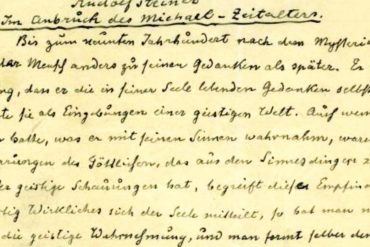 Rudolf Steiner
Im Anbruch des Michael-Zeitalters.
Bis zum neunten Jahrhundert nach dem Mysteri
der Mensch anders zu seinen Gedanken als später. Er
ng, dass er die in seiner Seele lebenden Gedanken selbst
te sie als Eingebungen einer geistigen Welt. Auch wen
hatte, was er mit seinen Sinnen wahrnahm, waren
arungen des Göttlichen, das aus den Sinnesdingen z
geistige Schauungen hat, begreift diese Empfin
tig Wirkliches sich der Seele mitteilt, so hat man n
die geistige Wahrnehmung, und man formt selber de